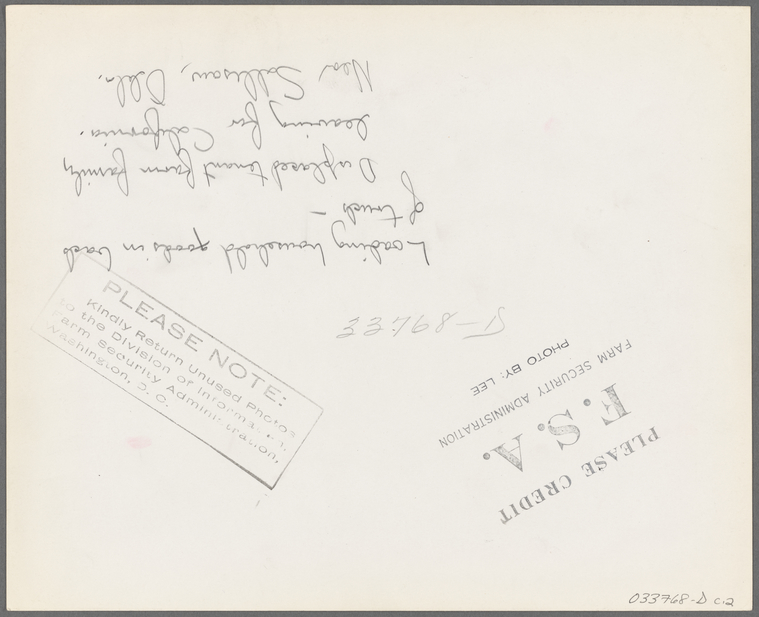 Loading household goods in back
of truck –
Displaced tenant farm family
leaving for California.
Near Sallisaw, Okla.
33768-D
PLEASE NOTE:
Kindly Return Unused Photos
to the Division of Information,
Farm Security Administration,
Washington, D. C.
PLEASE CREDIT
F.S.A.
FARM SECURITY ADMINISTRATION
PHOTO BY: LEE
033768-D c.2